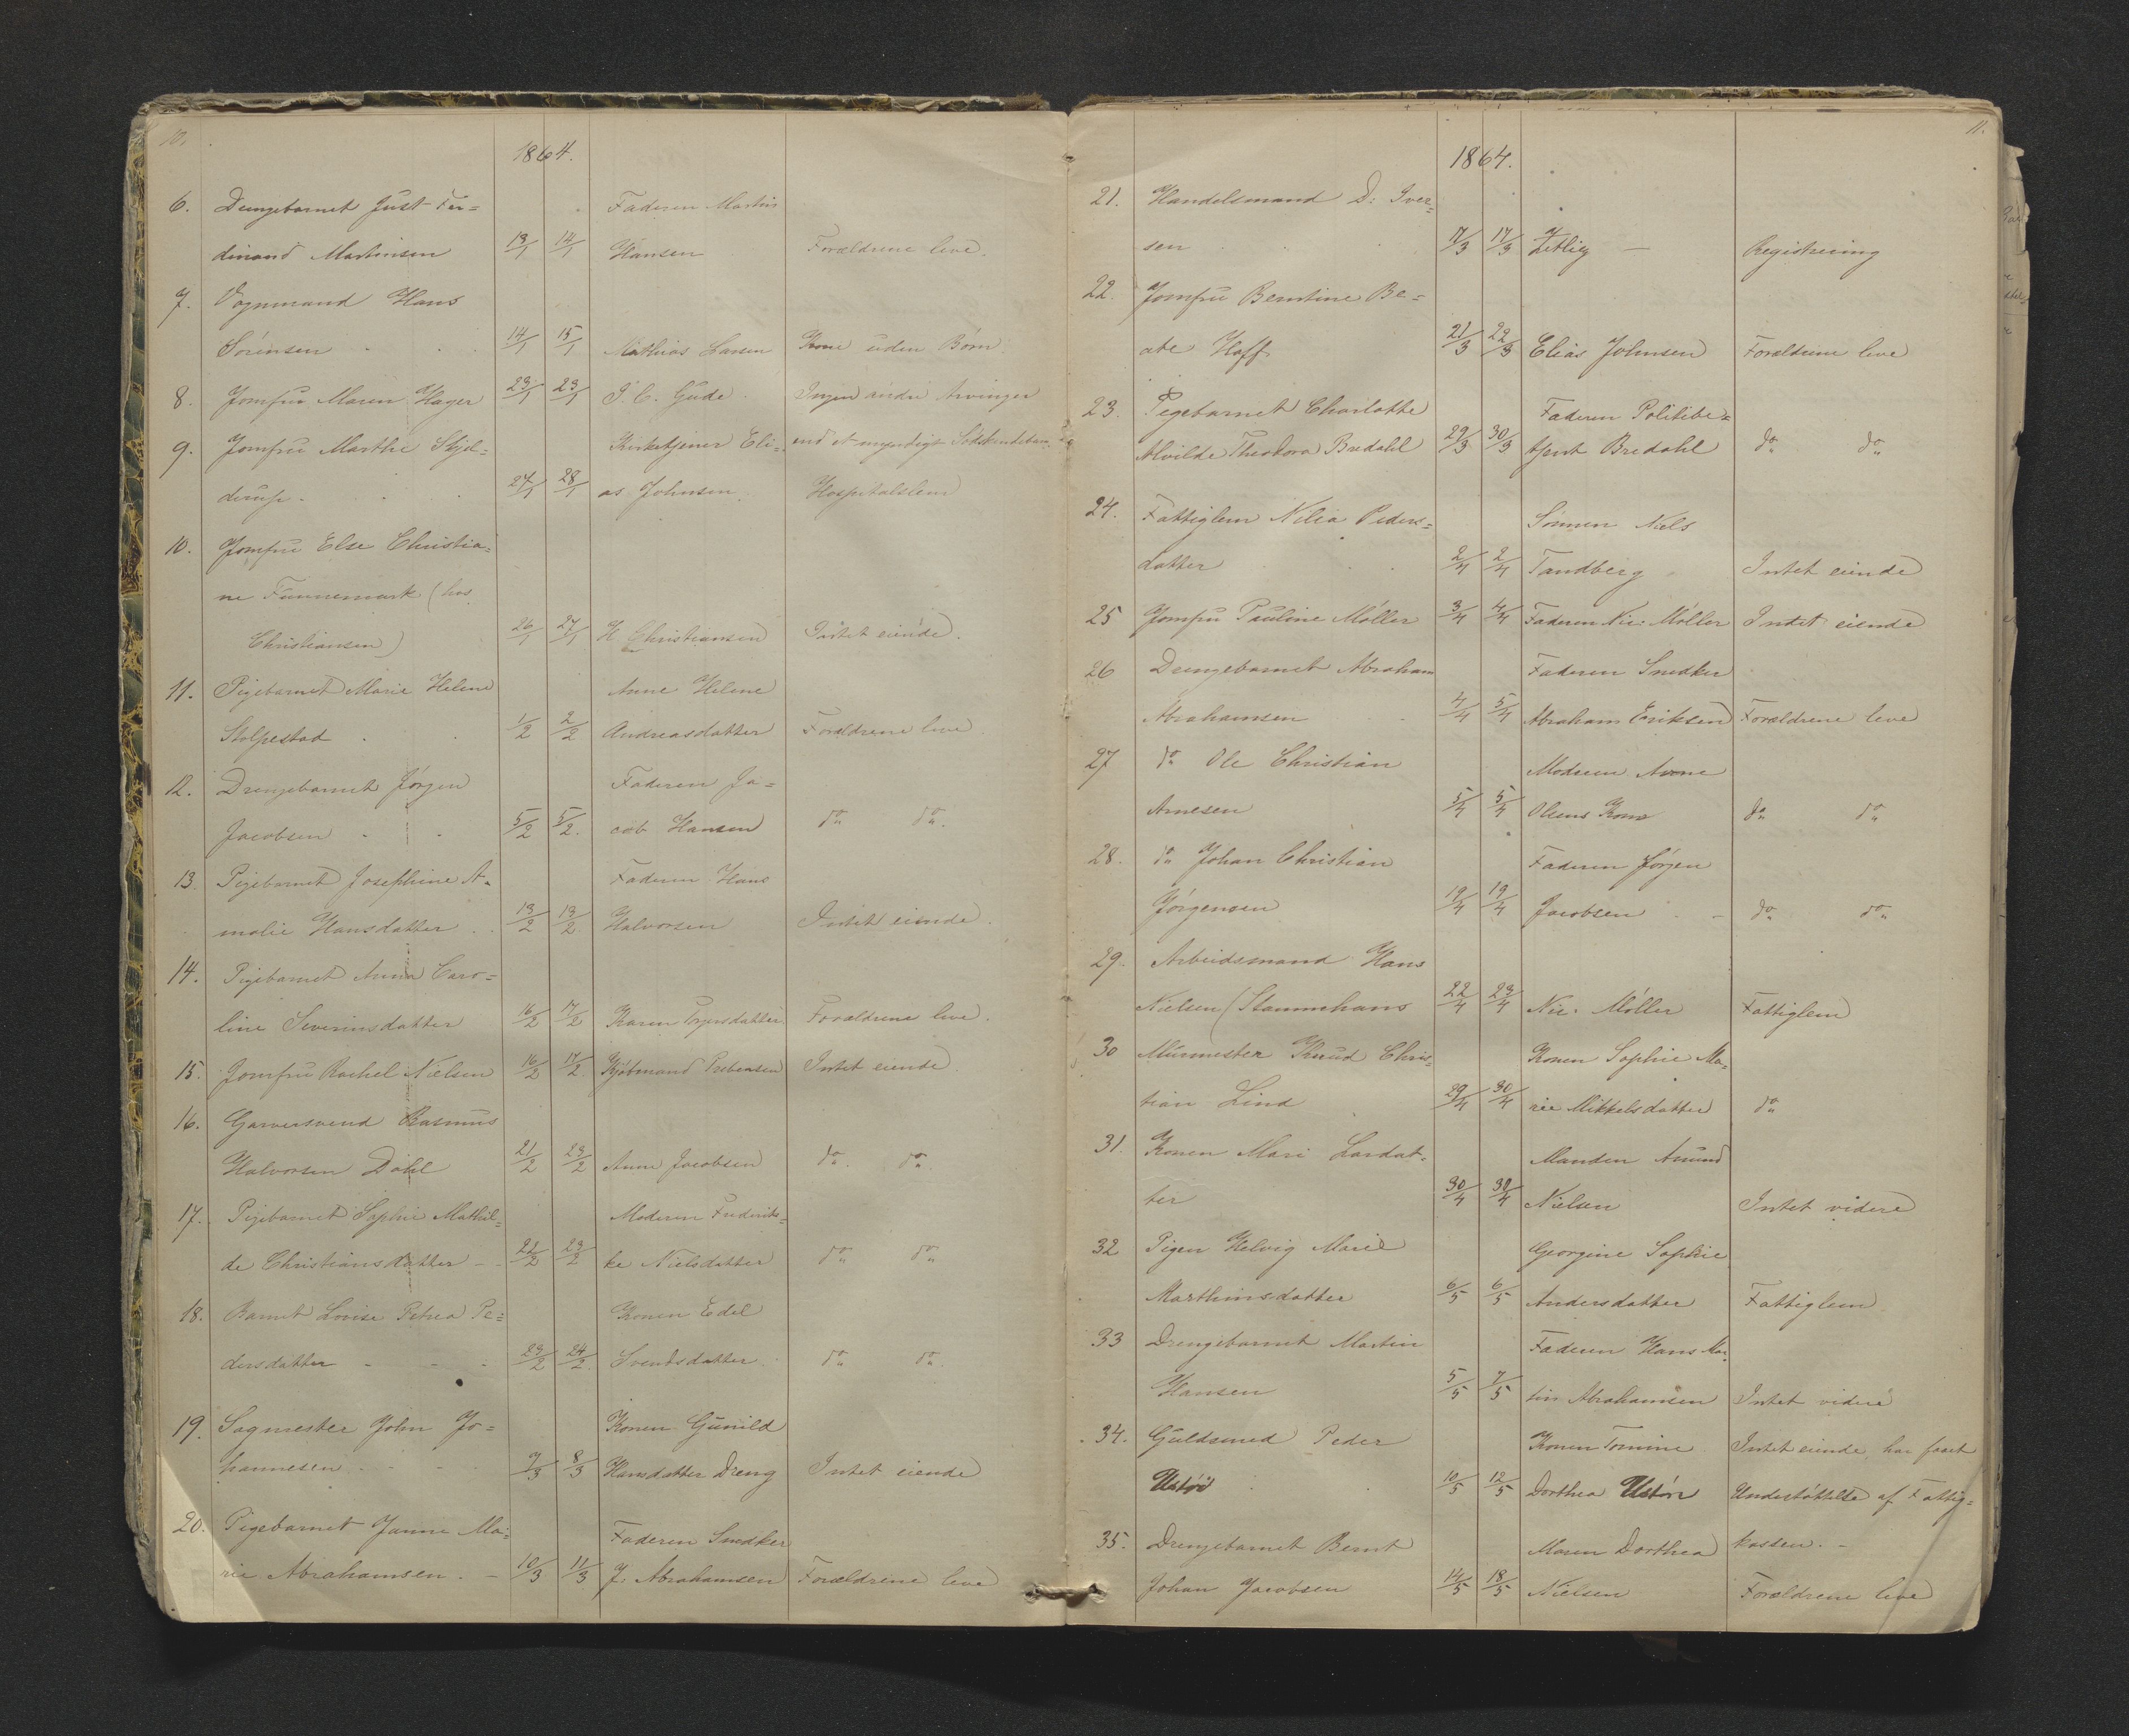 10.
1864.
6. Drengebarnet Just Fer= Faderen Martin
dinand Martinsen 13/1 14/1 Hansen Forældrene leve.
7. Vognmand Hans
Sørensen 14/1 15/1 Mathias Larsen Kone uden Børn
8. Jomfru Maren Hager 23/1 23/1 J. C. Gude Ingen andre Arvinger
9. Jomfru Marthe Skjel= Kirketjener Eli= end et myndigt
derup. 27/1 28/1 as Johnsen Hospitalslem
10. Jomfru Else Christia=
ne Funnemark (hos
Christiansen) 26/1 27/1 H Christiansen Intet eiende.
11. Pigebarnet Marie Helene Anne Helene
Stolpestad 1/2 2/2 Andreasdatter Forældrene leve
12. Drengebarnet Jørgen Faderen Ja=
Jacobsen 5/2 5/2. cob Hansen do do.
13. Pigebarnet Josephine A= Faderen Hans
malie Hansdatter 13/2 13/2 Halvorsen Intet eiende.
14. Pigebarnet Anna Caro=
line Severinsdatter 16/2 17/2 Karen Forældrene leve.
15. Jomfru Rachel Nielsen 16/2 17/2. Kjøbmand Prebensen Intet eiende.
16. Garversvend Rasmus
Halvorsen Dahl 21/2 23/2 Anne Jacobsen do. do.
17. Pigebarnet Sophie Mathil= Moderen Frederik=
de Christiansdatter - 22/2 23/2 ke Nielsdatter do do
18. Barnet Lovise Petrea Pe= Konen Edel
dersdatter - - - 23/2 24/2. Svendsdatter do do
19. Sagmester John Jo= Konen Gunild
hannesen - - 7/3 8/3 Hansdatter Dreng Intet eiende
20. Pigebarnet Janne Ma= Faderen Snedker
rie Abrahamsen. - 10/3 11/3 J. Abrahamsen Forældrene leve
11.
1864.
21. Handelsmand D: Iver=
sen 17/3 17/3 Zetlitz - Registrering
22. Jomfru Berntine Be=
ate Hoff 21/3 22/3 Elias Johnsen Forældrene leve
23. Pigebarnet Charlotte Faderen Politibe=
Alvilde Theodora Bredahl 29/3 30/3 tjent Bredahl do do
24. Fattiglem Nilia Peders= Sønnen Niels
datter 2/4 2/4 Tandberg Intet eiende
25 Jomfru Pauline Møller 3/4 4/4 Faderen Nic: Møller Intet eiende
26 Drengebarnet Abraham Faderen Snedker
Abrahamsen 4/4 5/4 Abraham Eriksen Forældrene leve
27 do Ole Christian Moderen Arne
Arnesen 5/4 5/4 Olsens Kone do do
28. do Johan Christian Faderen Jørgen
Jørgensen 19/4 19/4 Jacobsen - do do
29. Arbeidsmand Hans
Nielsen (Stammehans 22/4 23/4 Nic. Møller Fattiglem
30 Murmester Knud Chris= Konen Sophie Ma=
tian Lind 29/4 30/4 rie Mikkelsdatter do
31. Konen Mari Larsdat= Manden Amund
ter 30/4 30/4 Nielsen Intet videre
32 Pigen Helvig Marie Georgine Sophie
Marthinsdatter 6/5 6/5 Andersdatter Fattiglem
33 Drengebarnet Martin Faderen Hans Mar=
Hansen 5/5 7/5 tin Abrahamsen Intet videre
34. Guldsmed Peder Konen Tomine Intet eiende, har faaet
Ustøri 10/5 12/5 Dorthea Ustøri Understøttelse af Fattig=
35. Drengebarnet Bernt Maren Dorthea kassen. -
Johan Jacobsen 14/5 18/5 Nielsen Forældrene leve